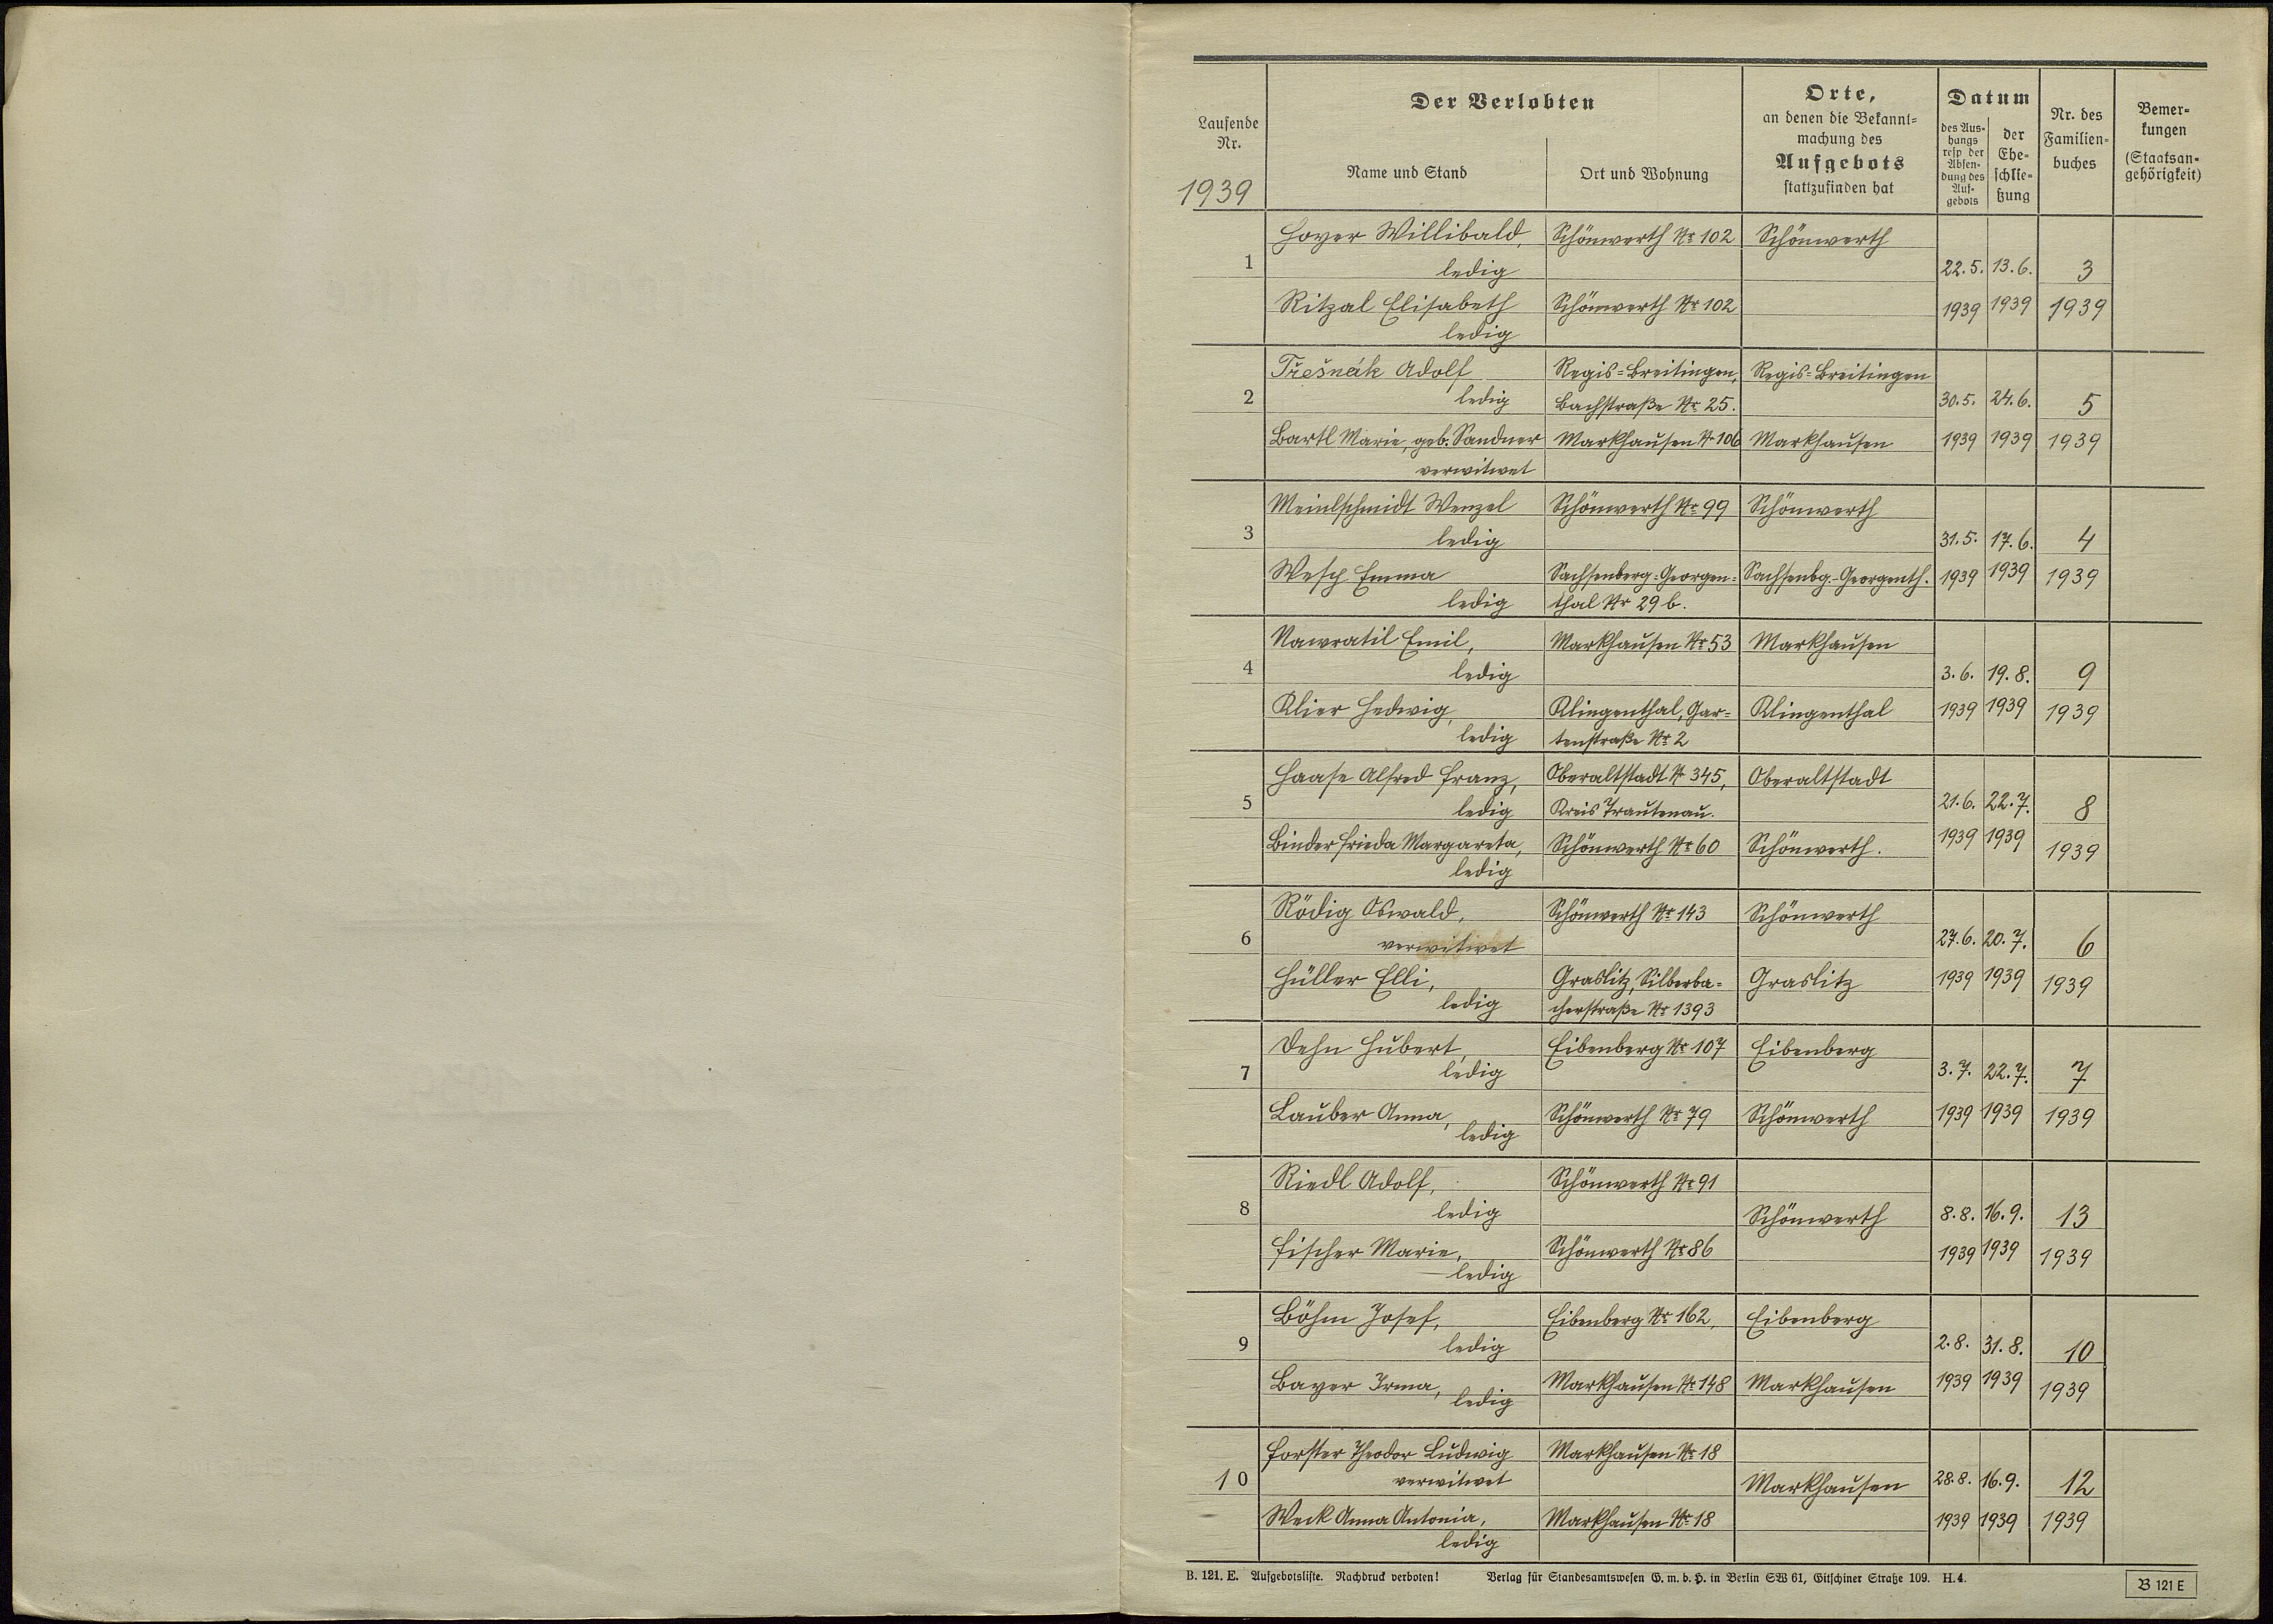 Laufende
Nr.
1939
Der Verlobten
Name und Stand
Ort und Wohnung
Orte,
an denen die Bekannt-
machung des
Aufgebots
stattzufinden hat
Datum
des Aus-
hangs
resp der
Absen-
dung des
Auf-
gebots
der
Ehe-
schlie-
ßung
Nr. des
Familien-
buches
Bemer-
kungen
(Staatsan-
gehörigkeit)
Hoyer Willibald, Schönwerth Nr 102 Schönwerth
1 ledig 22.5. 13.6. 3
Ritzal Elisabeth Schönwerth Nr 102 1939 1939 1939
ledig
Třešnák Adolf Regis-Breitingen, Regis-Breitingen
2 ledig Bachstraße Nr 25. 30.5. 24.6. 5
Bartl Marie, geb. Sandner Markhausen Nr 106 Markhausen 1939 1939 1939
verwitwet
Meinlschmidt Wenzel Schönwerth Nr 99 Schönwerth
3 ledig 31.5. 17.6. 4
Wesp Emma Sachsenberg-Georgen- Sachsenbg.-Georgenth. 1939 1939 1939
ledig thal Nr 29 b.
Nawratil Emil, Markhausen Nr 53 Markhausen
4 ledig 3.6. 19.8. 9
Klier Hedwig, Klingenthal, Gar- Klingenthal 1939 1939 1939
ledig tenstraße Nr 2
Haase Alfred Franz, Oberaltstadt Nr 345, Oberaltstadt
5 ledig Kreis Trautenau. 21.6. 22.7. 8
Binder Frieda Margareta, Schönwerth Nr 60 Schönwerth. 1939 1939 1939
ledig
Rödig Oswald, Schönwerth Nr 143 Schönwerth
6 verwitwet 27.6. 20.7. 6
Hüller Elli, Graslitz, Silberba- Graslitz 1939 1939 1939
ledig cherstraße Nr 1393
Dehn Hubert, Eibenberg Nr 107 Eibenberg
7 ledig 3.7. 22.7. 7
Lauber Anna, Schönwerth Nr 79 Schönwerth 1939 1939 1939
ledig
Riedl Adolf, Schönwerth Nr 91
8 ledig Schönwerth 8.8. 16.9. 13
Fischer Marie, Schönwerth Nr 86 1939 1939 1939
ledig
Böhm Josef, Eibenberg Nr 162, Eibenberg
9 ledig 2.8. 31.8. 10
Bayer Irma, Markhausen Nr 148 Markhausen 1939 1939 1939
ledig
Forster Theodor Ludwig Markhausen Nr 18
10 verwitwet Markhausen 28.8. 16.9. 12
Weck Anna Antonia, Markhausen Nr 18 1939 1939 1939
ledig
B. 121. E. Aufgebotsliste. Nachdruck verboten! Verlag für Standesamtswesen G. m. b. H. in Berlin SW 61, Gitschiner Straße 109. H.4.
B 121 E